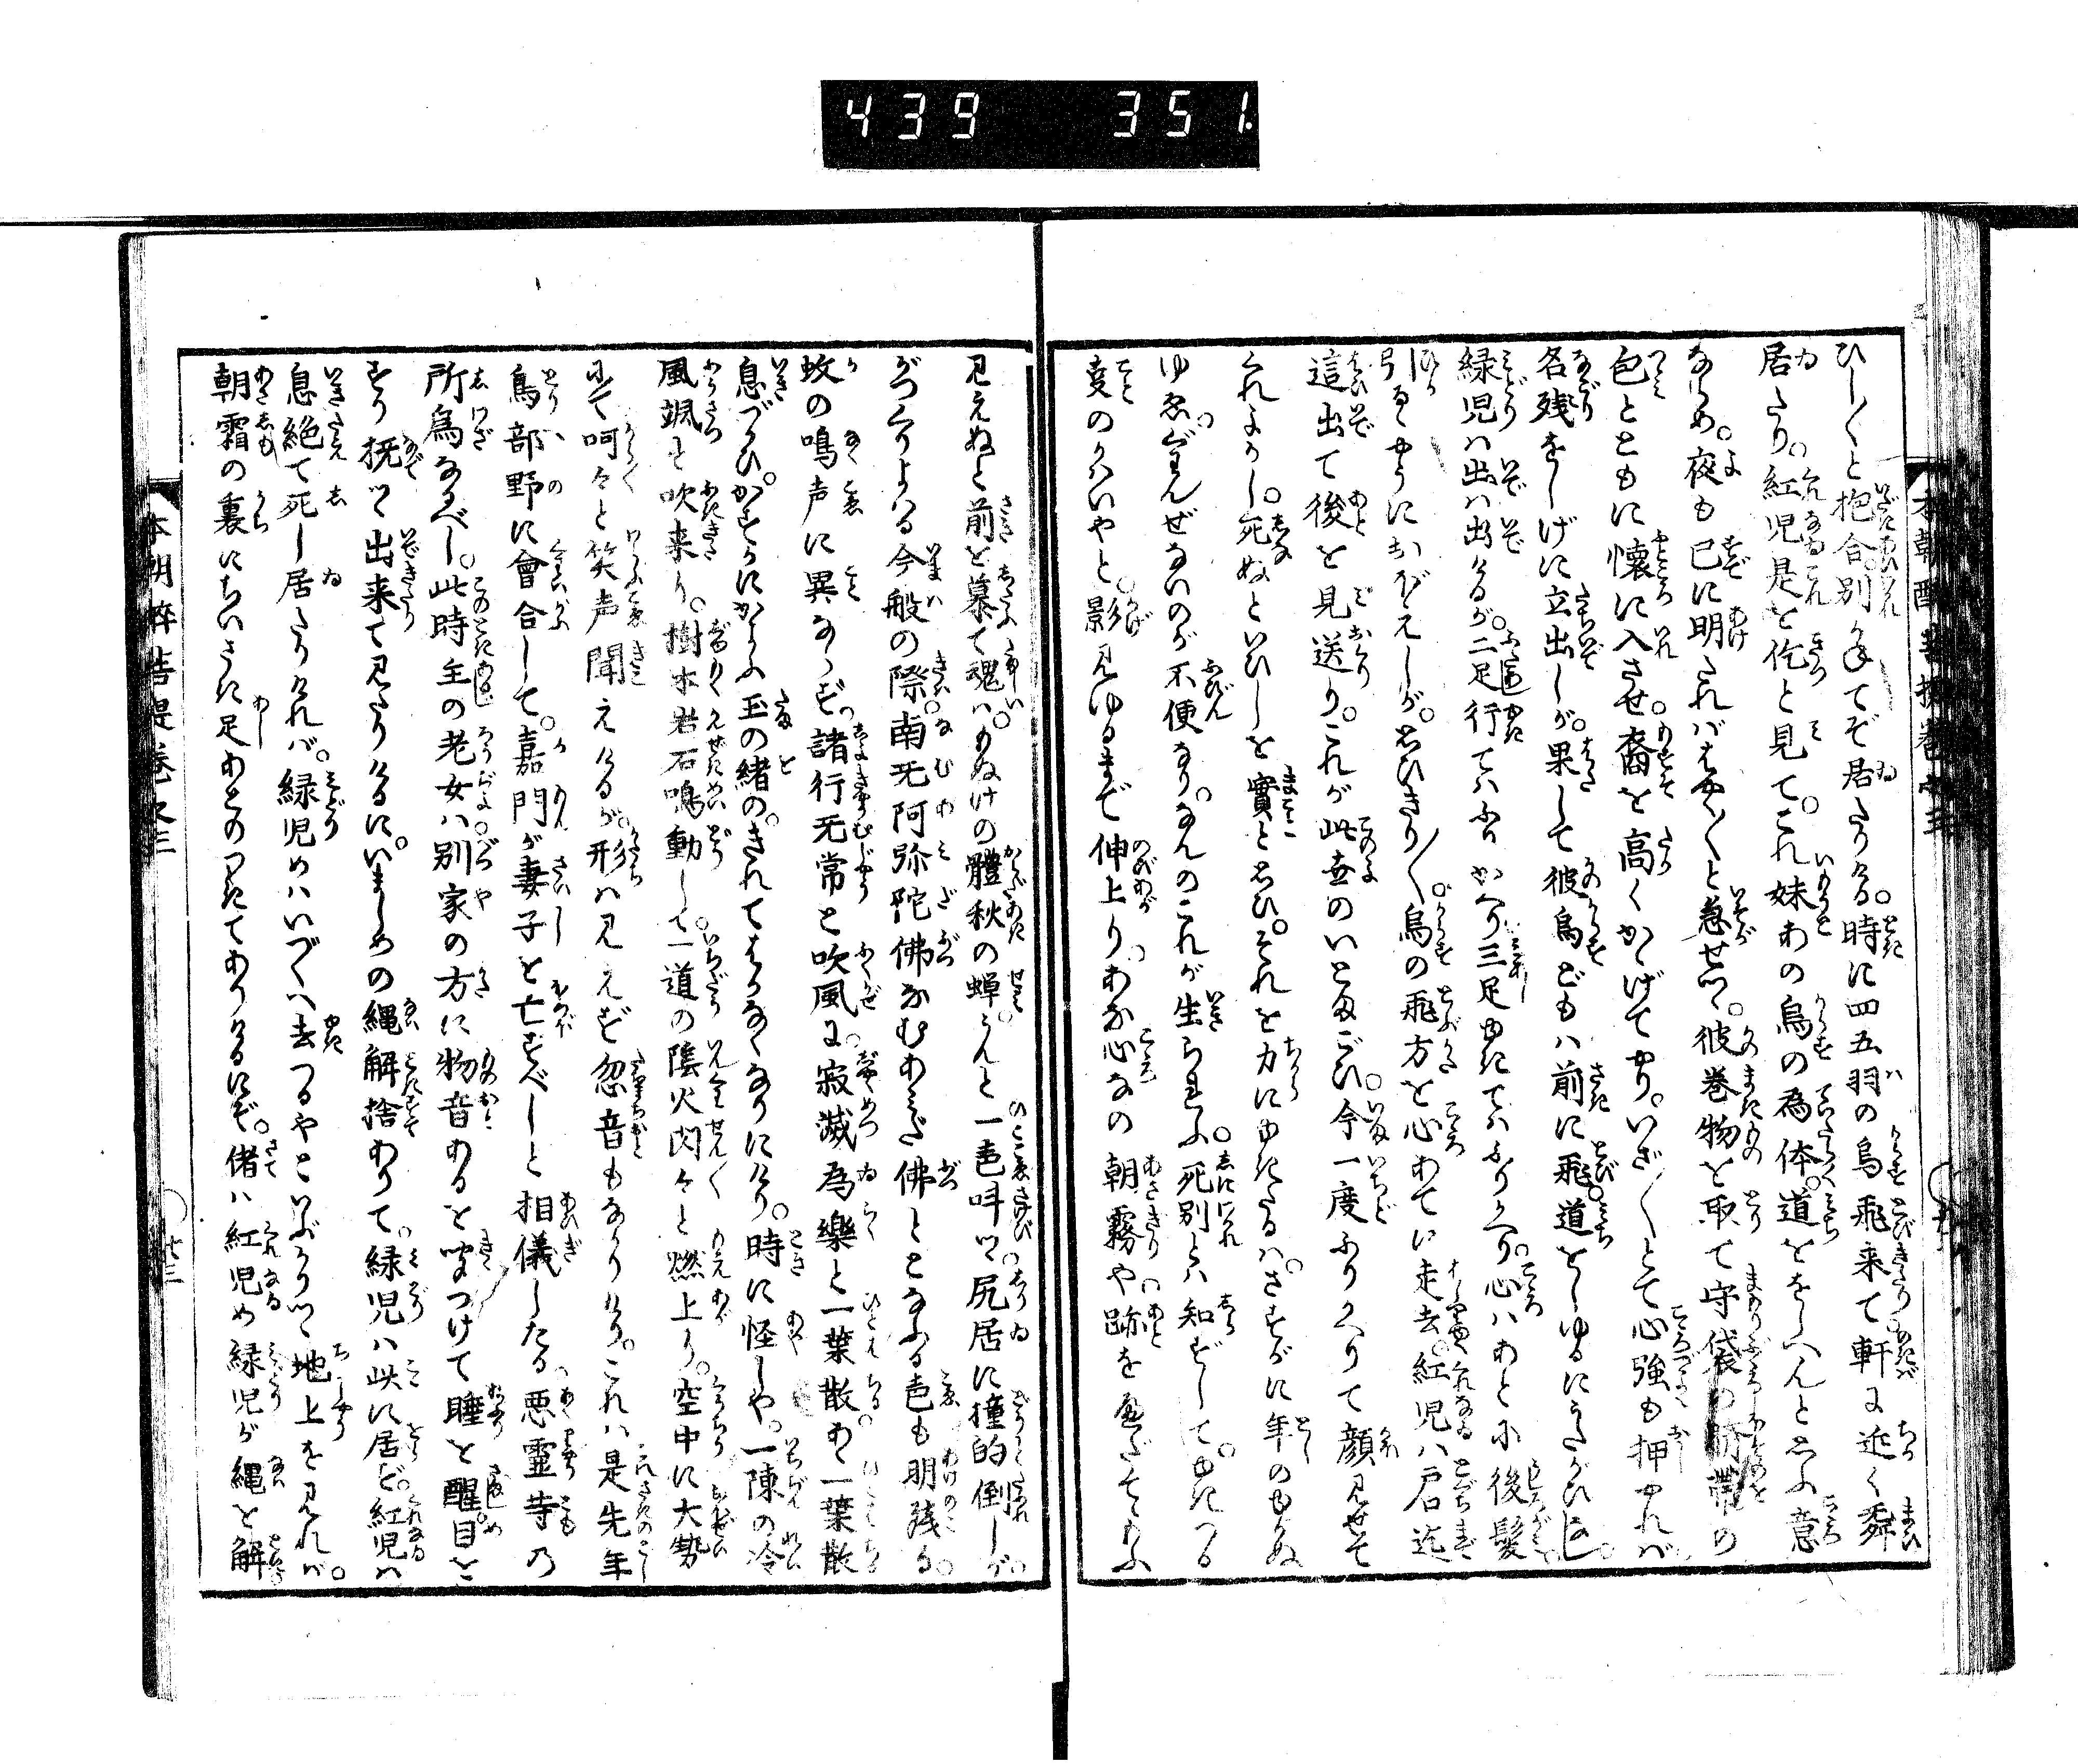 439 351
ひし〳〵と抱合別かねてぞ居たりける。時に四五羽の烏飛来て軒に近く舞
居たり。紅児是を佗と見て。これ妹あの烏の為体。道ををしへんとおもふ意
ならめ。夜も已に明たればはやく〳〵と急せつゝ。彼巻物を取て守袋の紐帯の
包とともに懐に入させ。裔を高くかゝげてやり。いざ〳〵とて心強も押やれば
名残をしげに立出しが。果して彼烏どもは前に飛。道ををしゆるにうたがひなし。
緑児は出は出けるが。二足行てはふりかへり三足ゆきてはふりかへり。心はあとに後髪
引るゝやうにおぼえしが。おもひきり〳〵。烏の飛方を心あてに走去。紅児は戸迄
這出て後を見送り。これが此世のいとまごひ。今一度ふりかへりて顔見せて
くれよかし。死ぬといひしを實とおもひ。それを力にゆきたるは。さすがに年のゆかぬ
ゆゑ。ぐわんぜないのが不便なり。なんのこれが生らりよふ。死別とは知ずして。ゆきつる
事のかはいやと。影見ゆるまで伸上り。あな心なの朝霧や跡をへだてそかふ
見えぬと前を慕て魂は。もぬけの體秋の蝉。うんと一声叫つゝ。尻居に撞的倒しが。
がつくりよはる今般の際。南无阿弥陀佛なむあみだ佛ととなふる声も明残る。
蚊の鳴声に異ならず。諸行无常と吹風に。寂滅為樂と一葉散。あく一葉散
息づかひ。かすかにかよふ玉の緒の。きれてはかなくなりにけり。時に怪しや。一陳の冷
風颯と吹来り。樹木岩石鳴動して。一道の陰火閃々と燃上り。空中に大勢
にて呵々と笑声聞えけるが。形は見えず忽音もなかりけり。これは是先年
鳥部野に會合して。嘉門が妻子を亡すべしと相儀したる。悪霊等の
所為なるべし。此時主の老女は別家の方に物音あるを聞つけて睡を醒。目を
すり撫つゝ出来て見たりけるに。いましめの縄解捨ありて。緑児は此に居ど。紅児は
息絶て死し居たりければ。緑児めはいづくへ去つるやといぶかりつゝ地上を見れば。
朝霜の裏にちいさき足あとのつきてありけるにぞ。偖は紅児め緑児が縄を解
本朝酔菩提巻之三
廿三